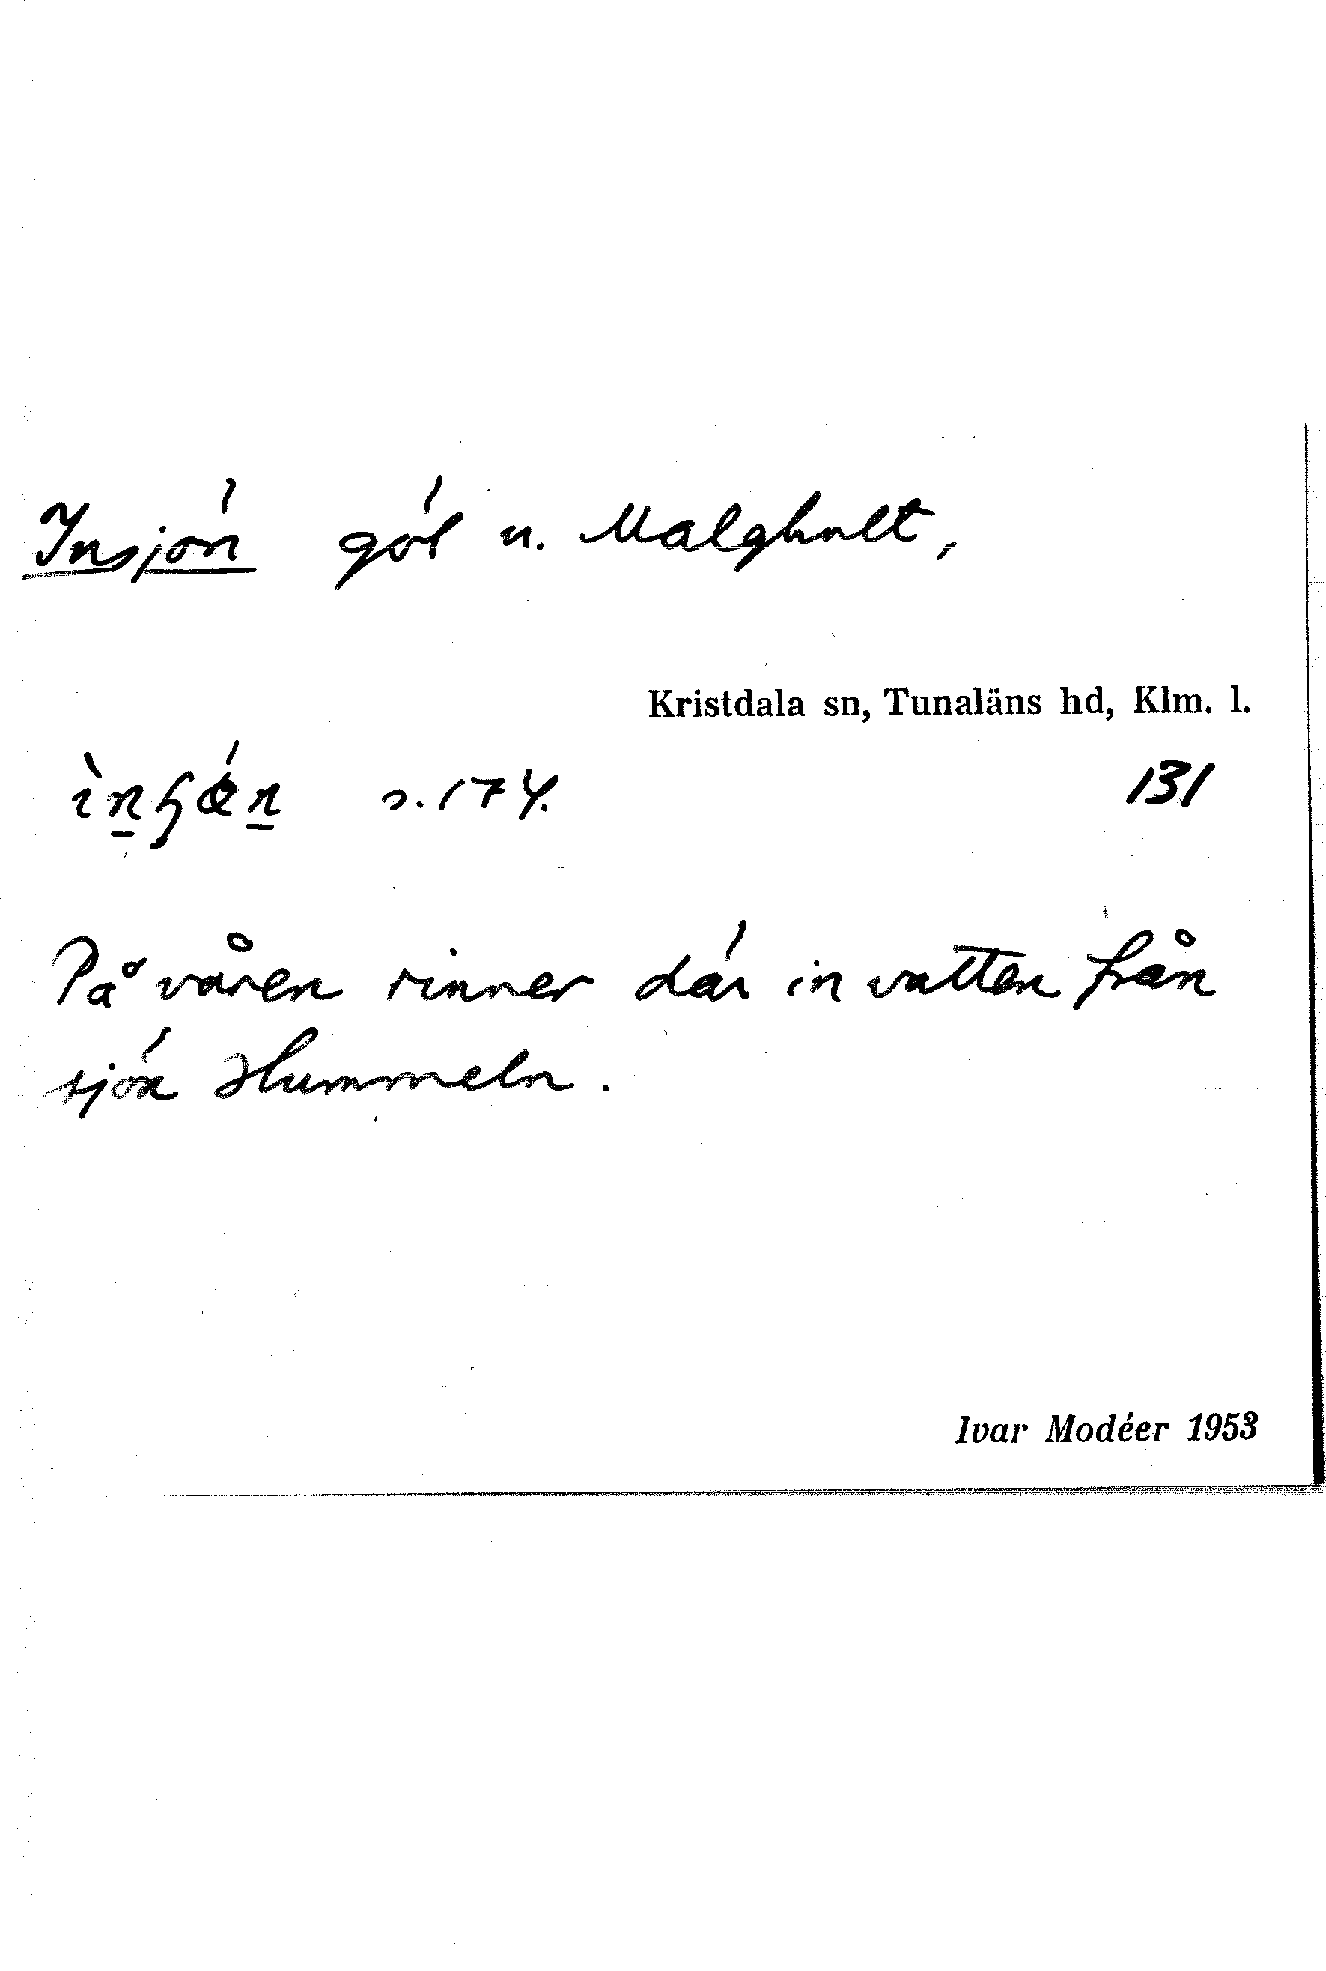 Insjön göl u. Malghult,
Kristdala sn, Tunaläns hd, Klm. l.
s. 174. 131
På våren rinner där in vatten från
sjön Hummeln.
Ivar Modéer 1953